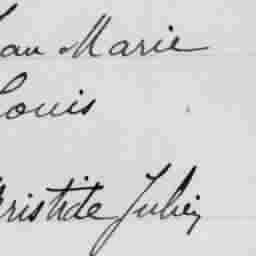 ean Marie
Louis
Aristide Julien